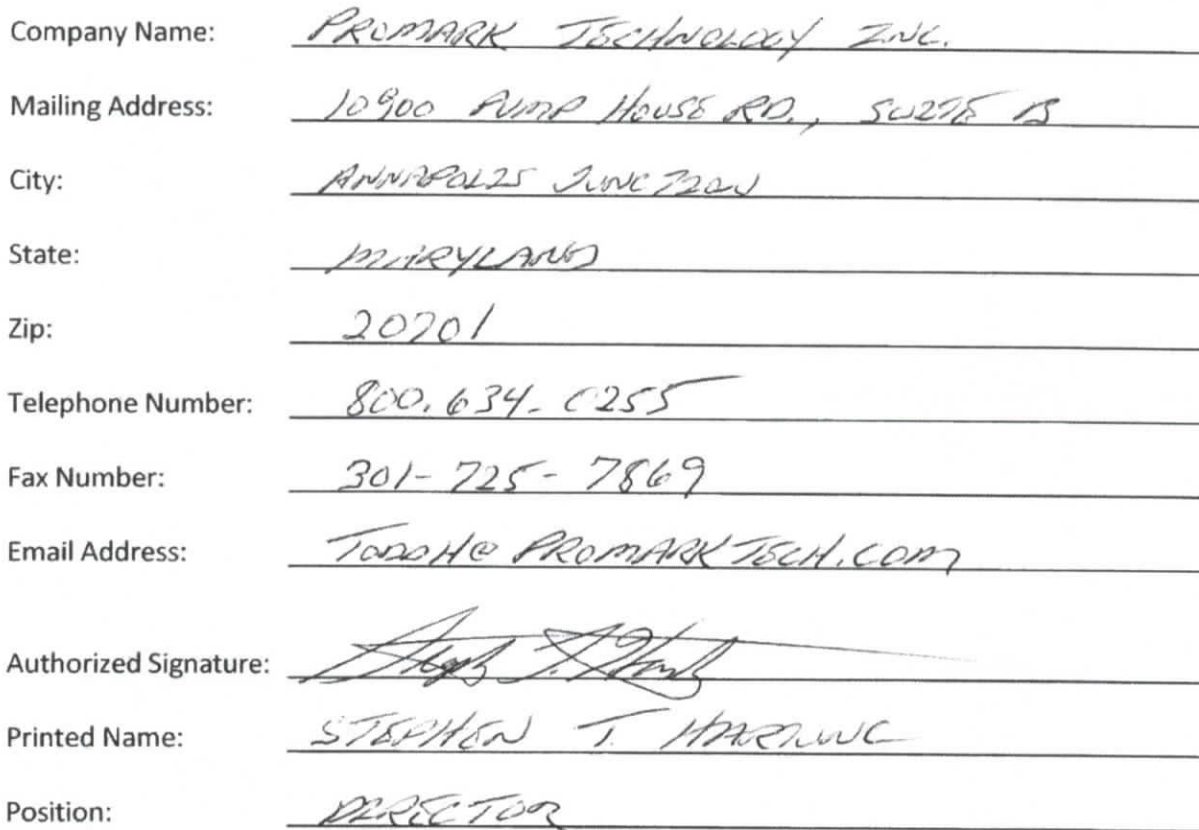 Company Name: PROMARK TECHNOLOGY INC.
Mailing Address: 10900 PUMP HOUSE RD., SUITE B
City: ANNAPOLIS JUNCTION
State: MARYLAND
Zip: 20701
Telephone Number: 800.634-0255
Fax Number: 301-725-7869
Email Address: TODDH@PROMARKTECH.COM
Authorized Signature:
Printed Name: STEPHEN T.
Position: DIRECTOR